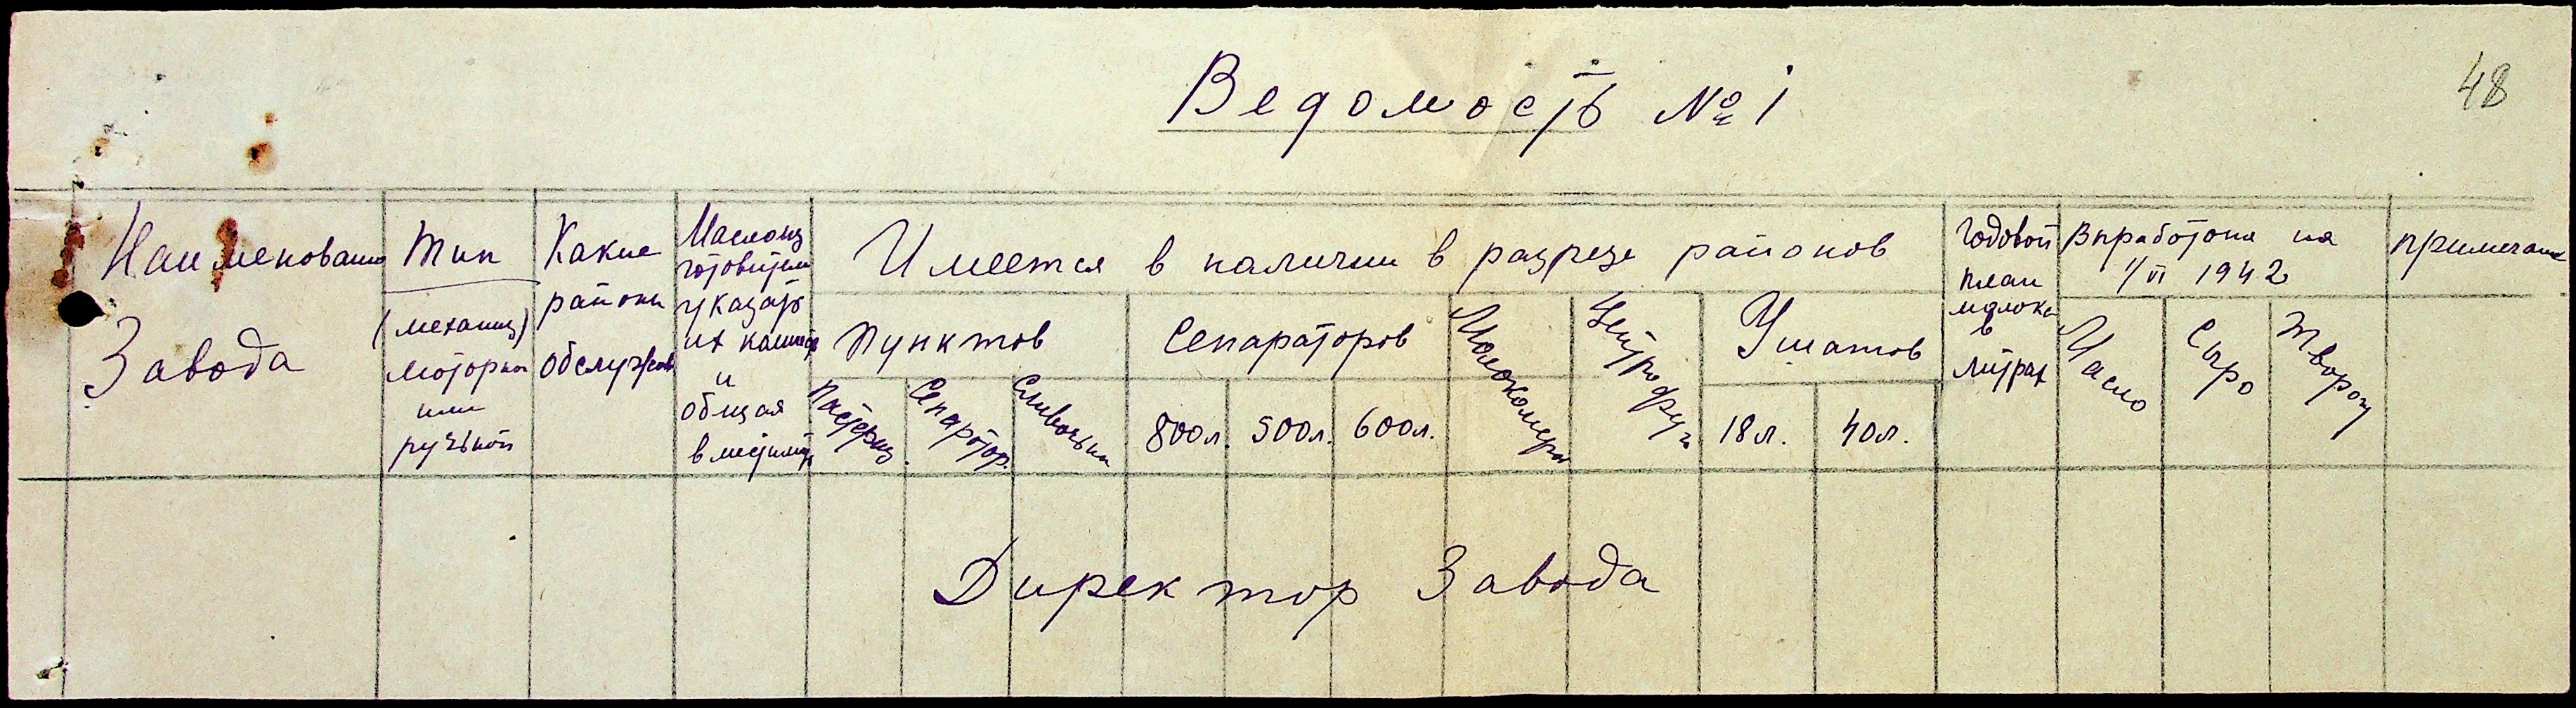 48
Ведомость № 1
Наименование
Завода
Тип
(механиз)
моторный
или
ручьной
Какие
районы
обслужив
Маслоиз
готовители
указать
их колич
и
общая
вместимость
Имеется в наличии в разрезе районов
Пунктов
Пастериз.
Сепаратор.
Сливочных
Сепараторов
800л.
500л.
600л.
Молокомеры
Центрофуги
Ушатов
18л.
40л.
Годовой
план
молока
в
литрах
Выработано на
1/VI 1942
Масло
Сыро
Творогу
примечание
Директор Завода